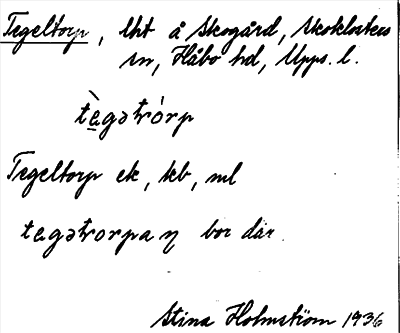 Tegeltorp, lht å Skogård, Skoklosters
sn, Håbo hd, Upps. l.
tègətrórp
Tegeltorp ek, kb, ml
tegətrorpaŋ bor där.
Stina Holmström 1936